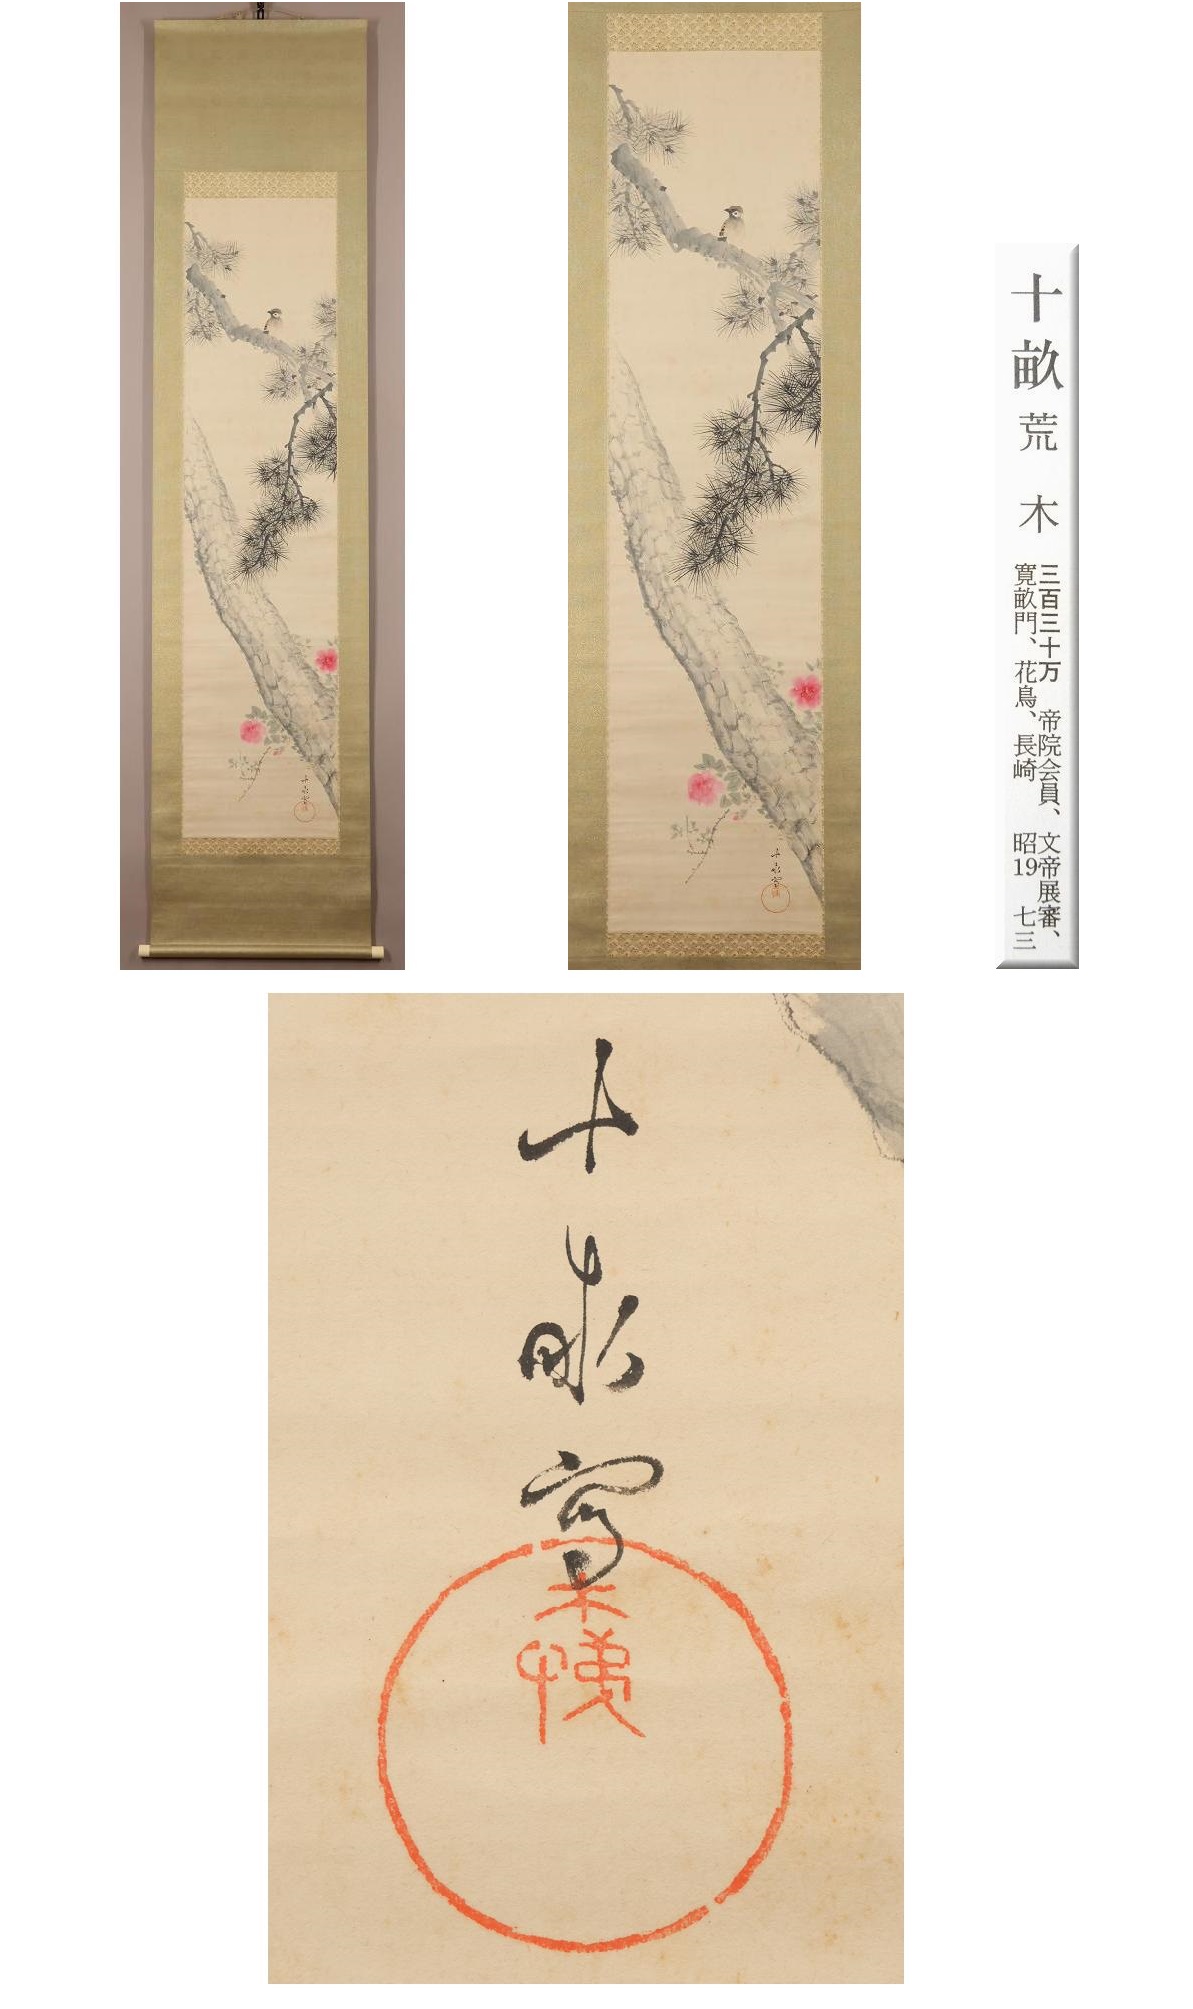 十畝 荒木
三百三十万 帝院会員、文帝展審、
寛畝門、花鳥、長崎 昭19 七三
十畝寫